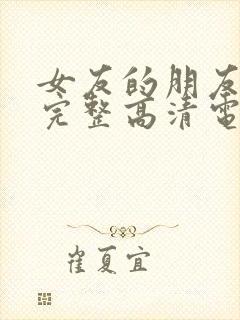 女友的朋友
完整高清电
崔夏宜